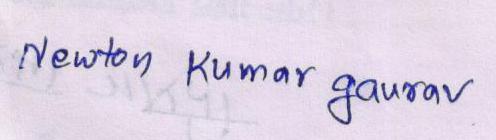 Newton Kumar gaurav